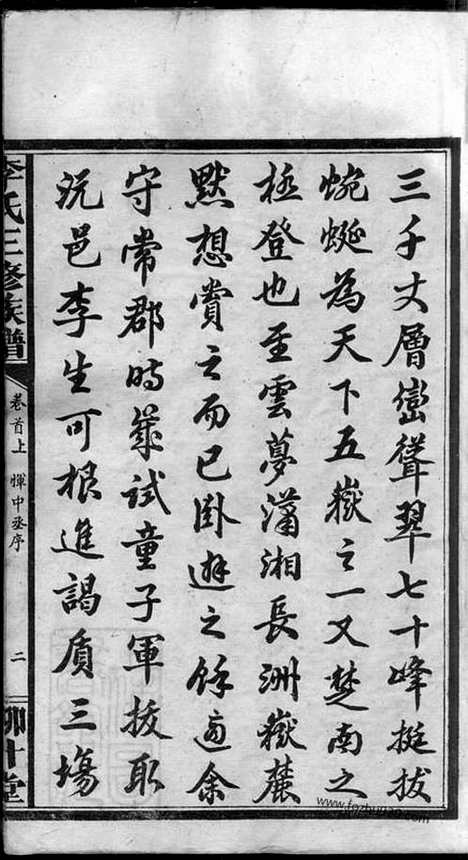 三千丈層巒聳翠七十峰挺拔
蜿蜒為天下五嶽之一又楚南之
極登也至雲夢瀟湘長洲嶽麓
默想賞之而已卧遊之餘適余
守常郡時歲試童子軍拔取
沅邑李生可根進謁質三塲
李氏三修族譜
卷首上 惲中丞序
二
柳汁堂
www.fozhu920.com